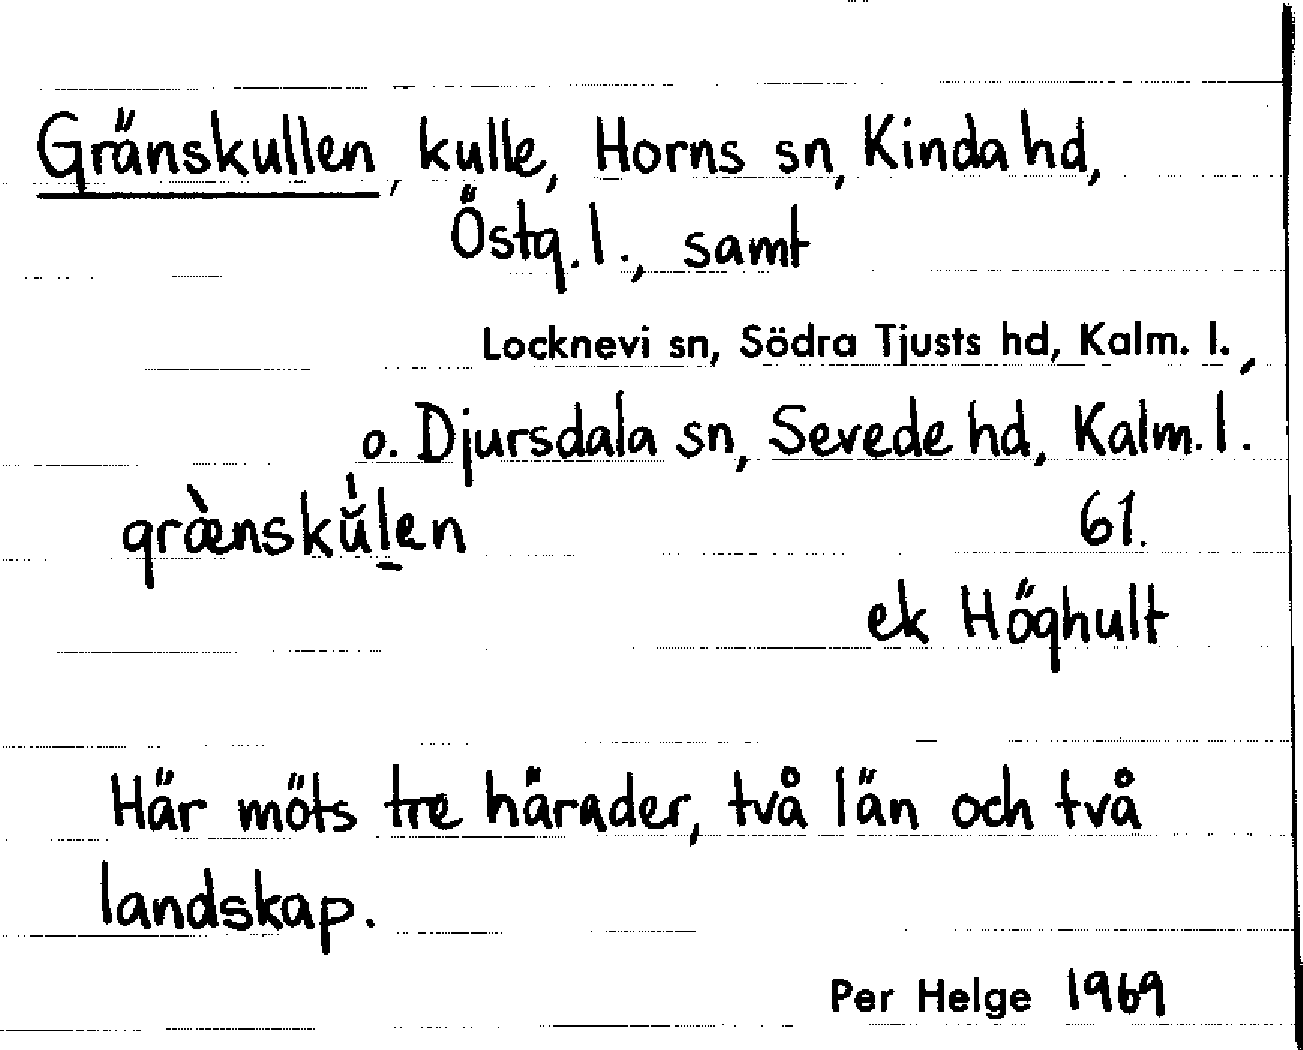 Gränskullen, kulle, Horns sn, Kinda hd,
Östg. l., samt
Locknevi sn, Södra Tjusts hd, Kalm. l.,
o. Djursdala sn, Sevede hd, Kalm. l.
græ̀nskŭ̍l̠en 61.
ek Höghult
Här möts tre härader, två län och två
landskap.
Per Helge 1969